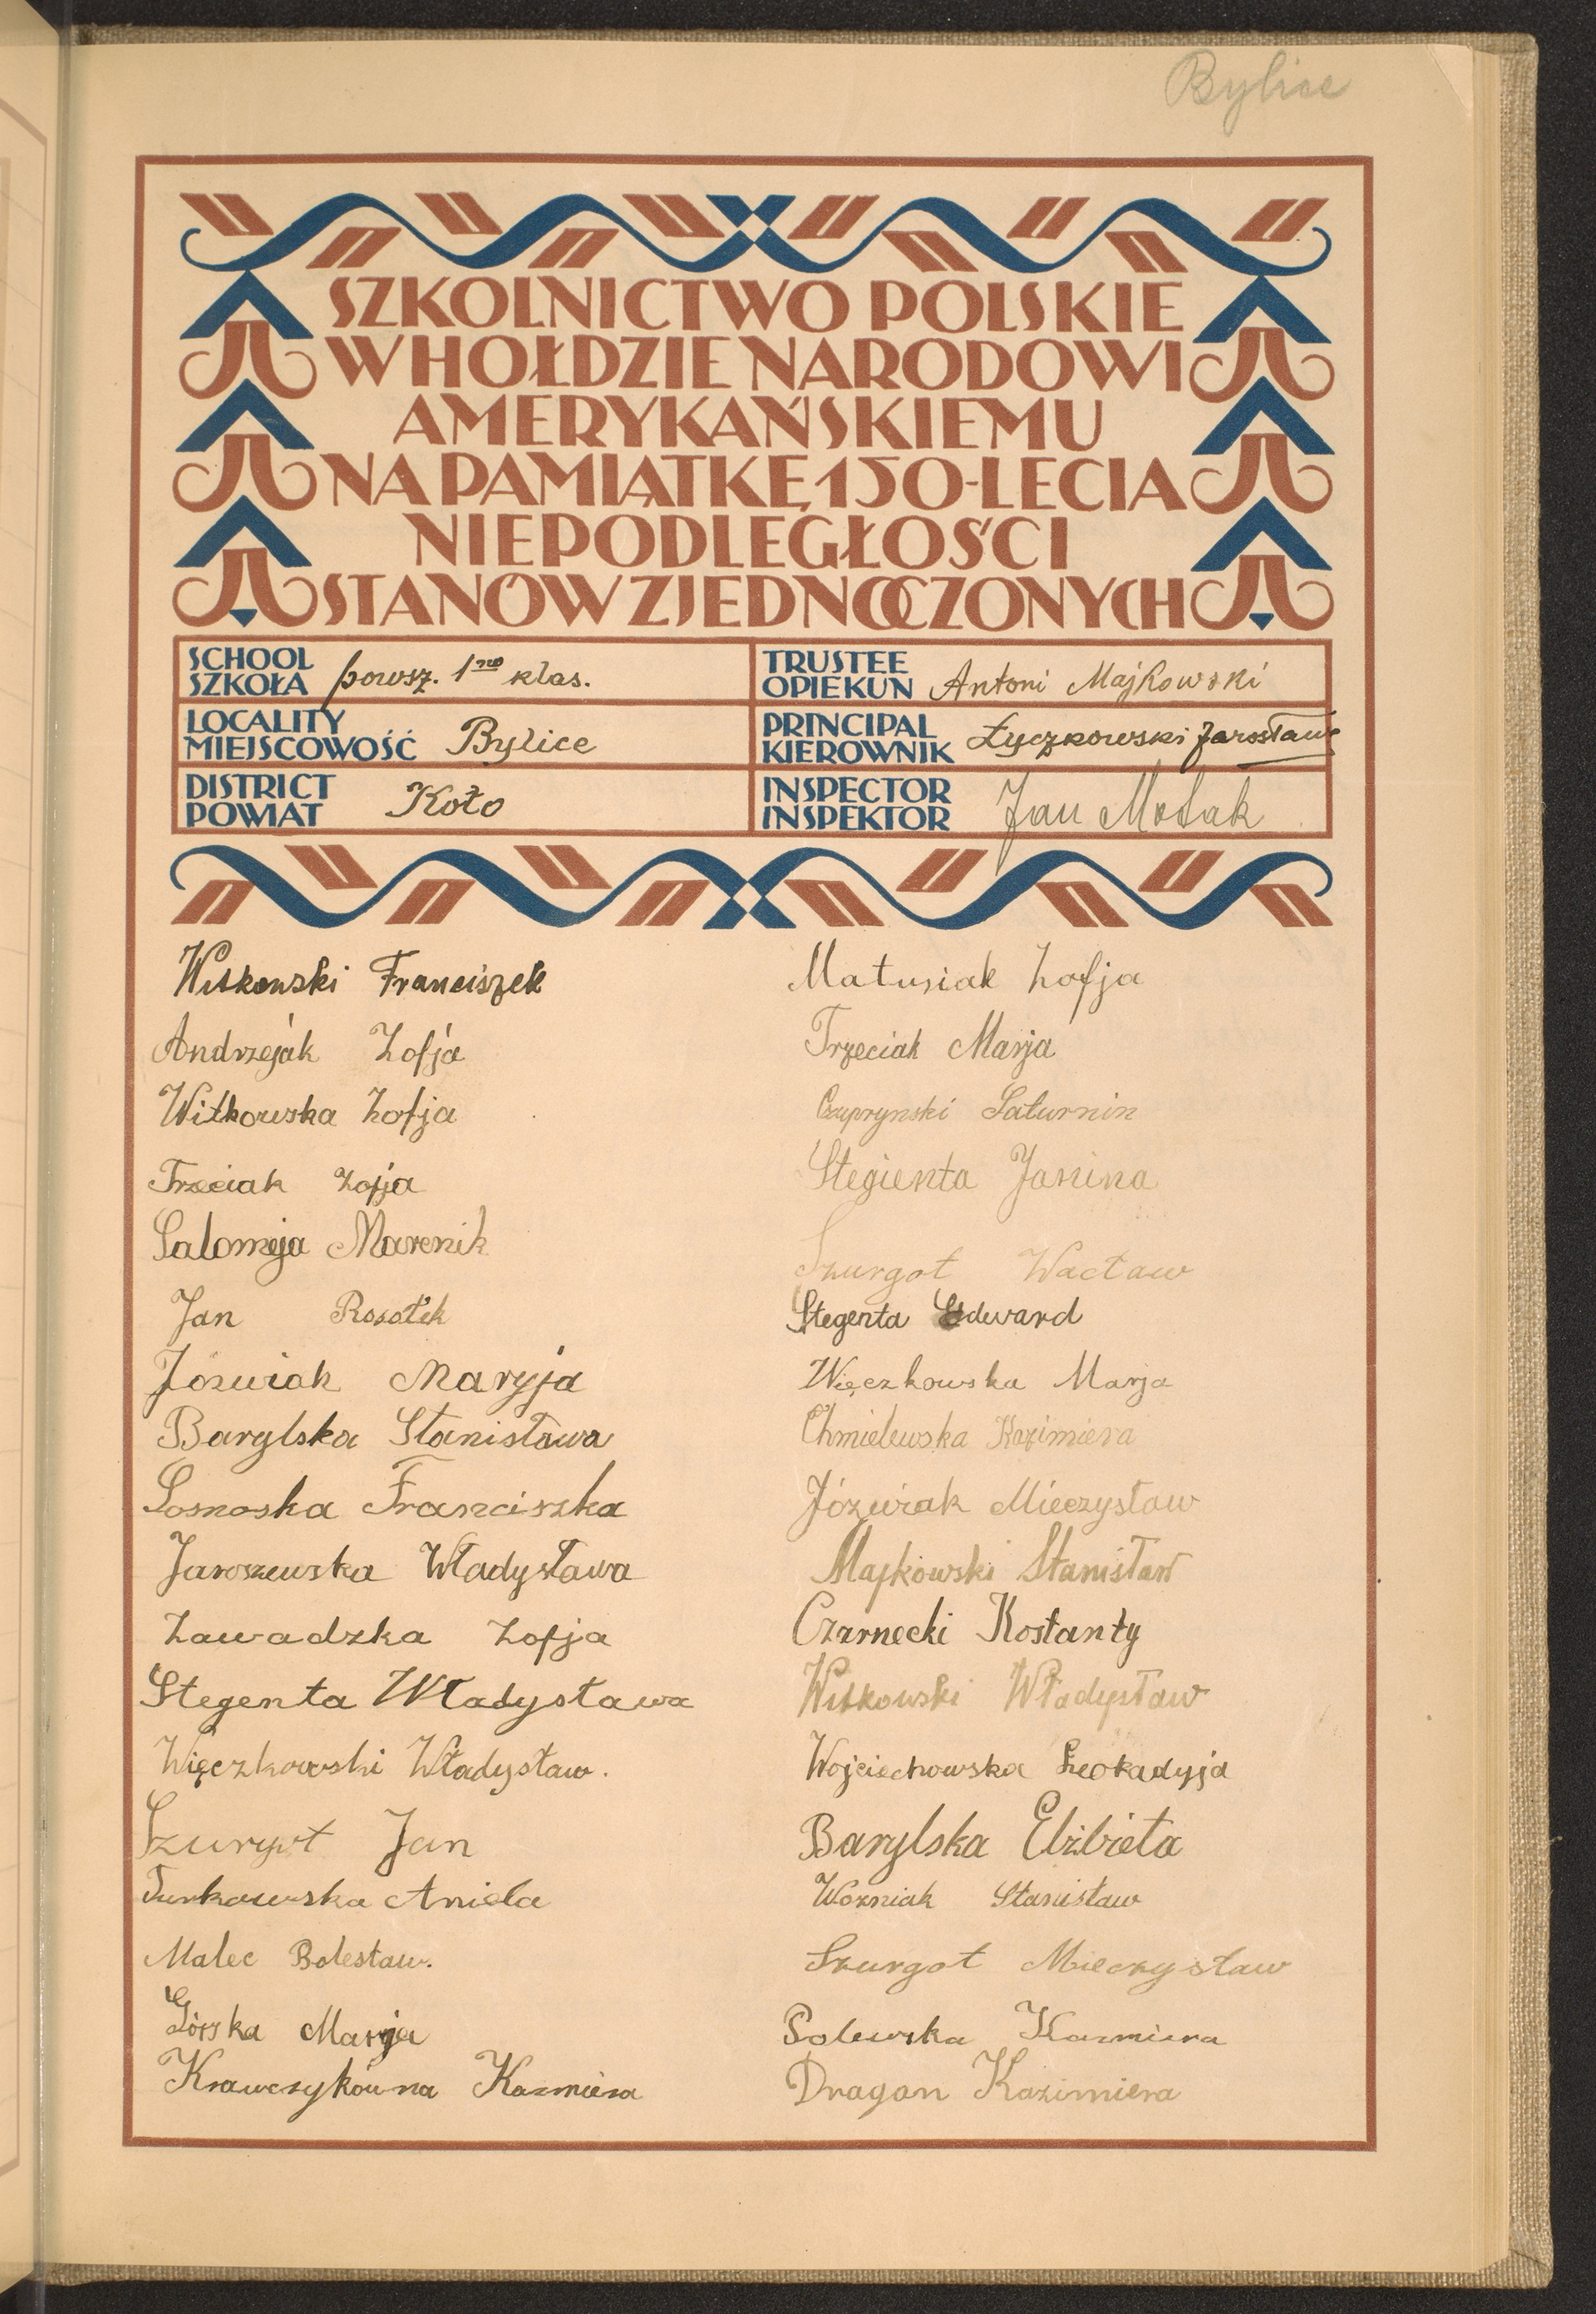 Bylice
SZKOLNICTWO POLSKIE
W HOŁDZIE NARODOWI
AMERYKAŃSKIEMU
NA PAMIĄTKĘ 150-LECIA
NIEPODLEGŁOŚCI
STANÓW ZJEDNOCZONYCH
SCHOOL
SZKOŁA powsz. 1no klas.
LOCALITY
MIEJSCOWOŚĆ Bylice
DISTRICT
POWIAT Koło
TRUSTEE
OPIEKUN Antoni Majkowski
PRINCIPAL
KIEROWNIK Łyczkowski Jarosław
INSPECTOR
INSPEKTOR Jan
Witkowski Franciszek
Andrzejak Zofja
Witkowska Zofja
Trzeciak Zofja
Salomeja Marcnik
Jan Rosołek
Józwiak Maryja
Barylska Stanisława
Sosnoska Franciszka
Jaroszewska Władysława
Zawadzka Zofja
Stegenta Władysława
Więczkowski Władysław.
Szurgot Jan
Turkowska Aniela
Malec Bolesław.
Górska Marja
Krawczykówna Kazmiera
Matusiak Zofja
Trzeciak Marja
Czuprynski Saturnin
Stegienta Janina
Szurgot Wacław
Stegenta Edward
Więczkowska Marja
Chmielewska Kazimiera
Józwiak Mieczysław
Majkowski Stanisław
Czarnecki Kostanty
Witkowski Władysław
Wojciechowska Leokadyja
Barylska Elżbieta
Wozniak Stanisław
Szurgot Mieczysław
Solewska Kazmiera
Dragan Kazimiera